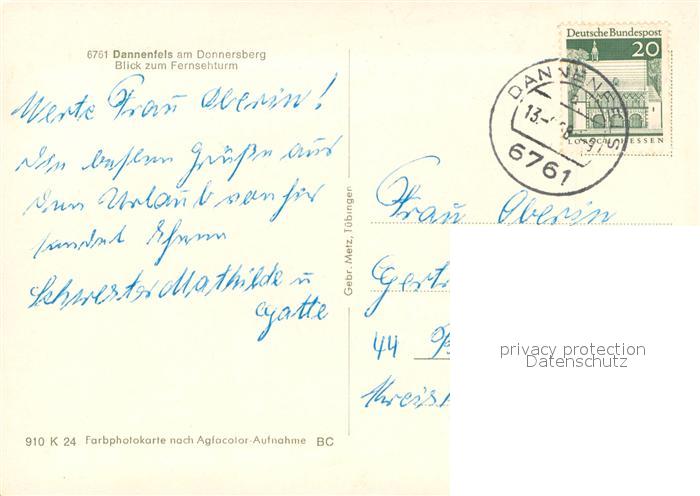 6761 Dannenfels am Donnersberg
Blick zum Fernsehturm
Werte Frau Oberin!
Die besten Grüße aus
dem Urlaub von hier
sendet Ihnen
Schwester Mathilde u
Gatte
910 K 24 Farbphotokarte nach Agfacolor-Aufnahme BC
Gebr. Metz, Tübingen
Deutsche Bundespost
20
LORSCH HESSEN
DANNENFELS
6761
Frau Oberin
Gertr
44
Kreis
privacy protection
Datenschutz